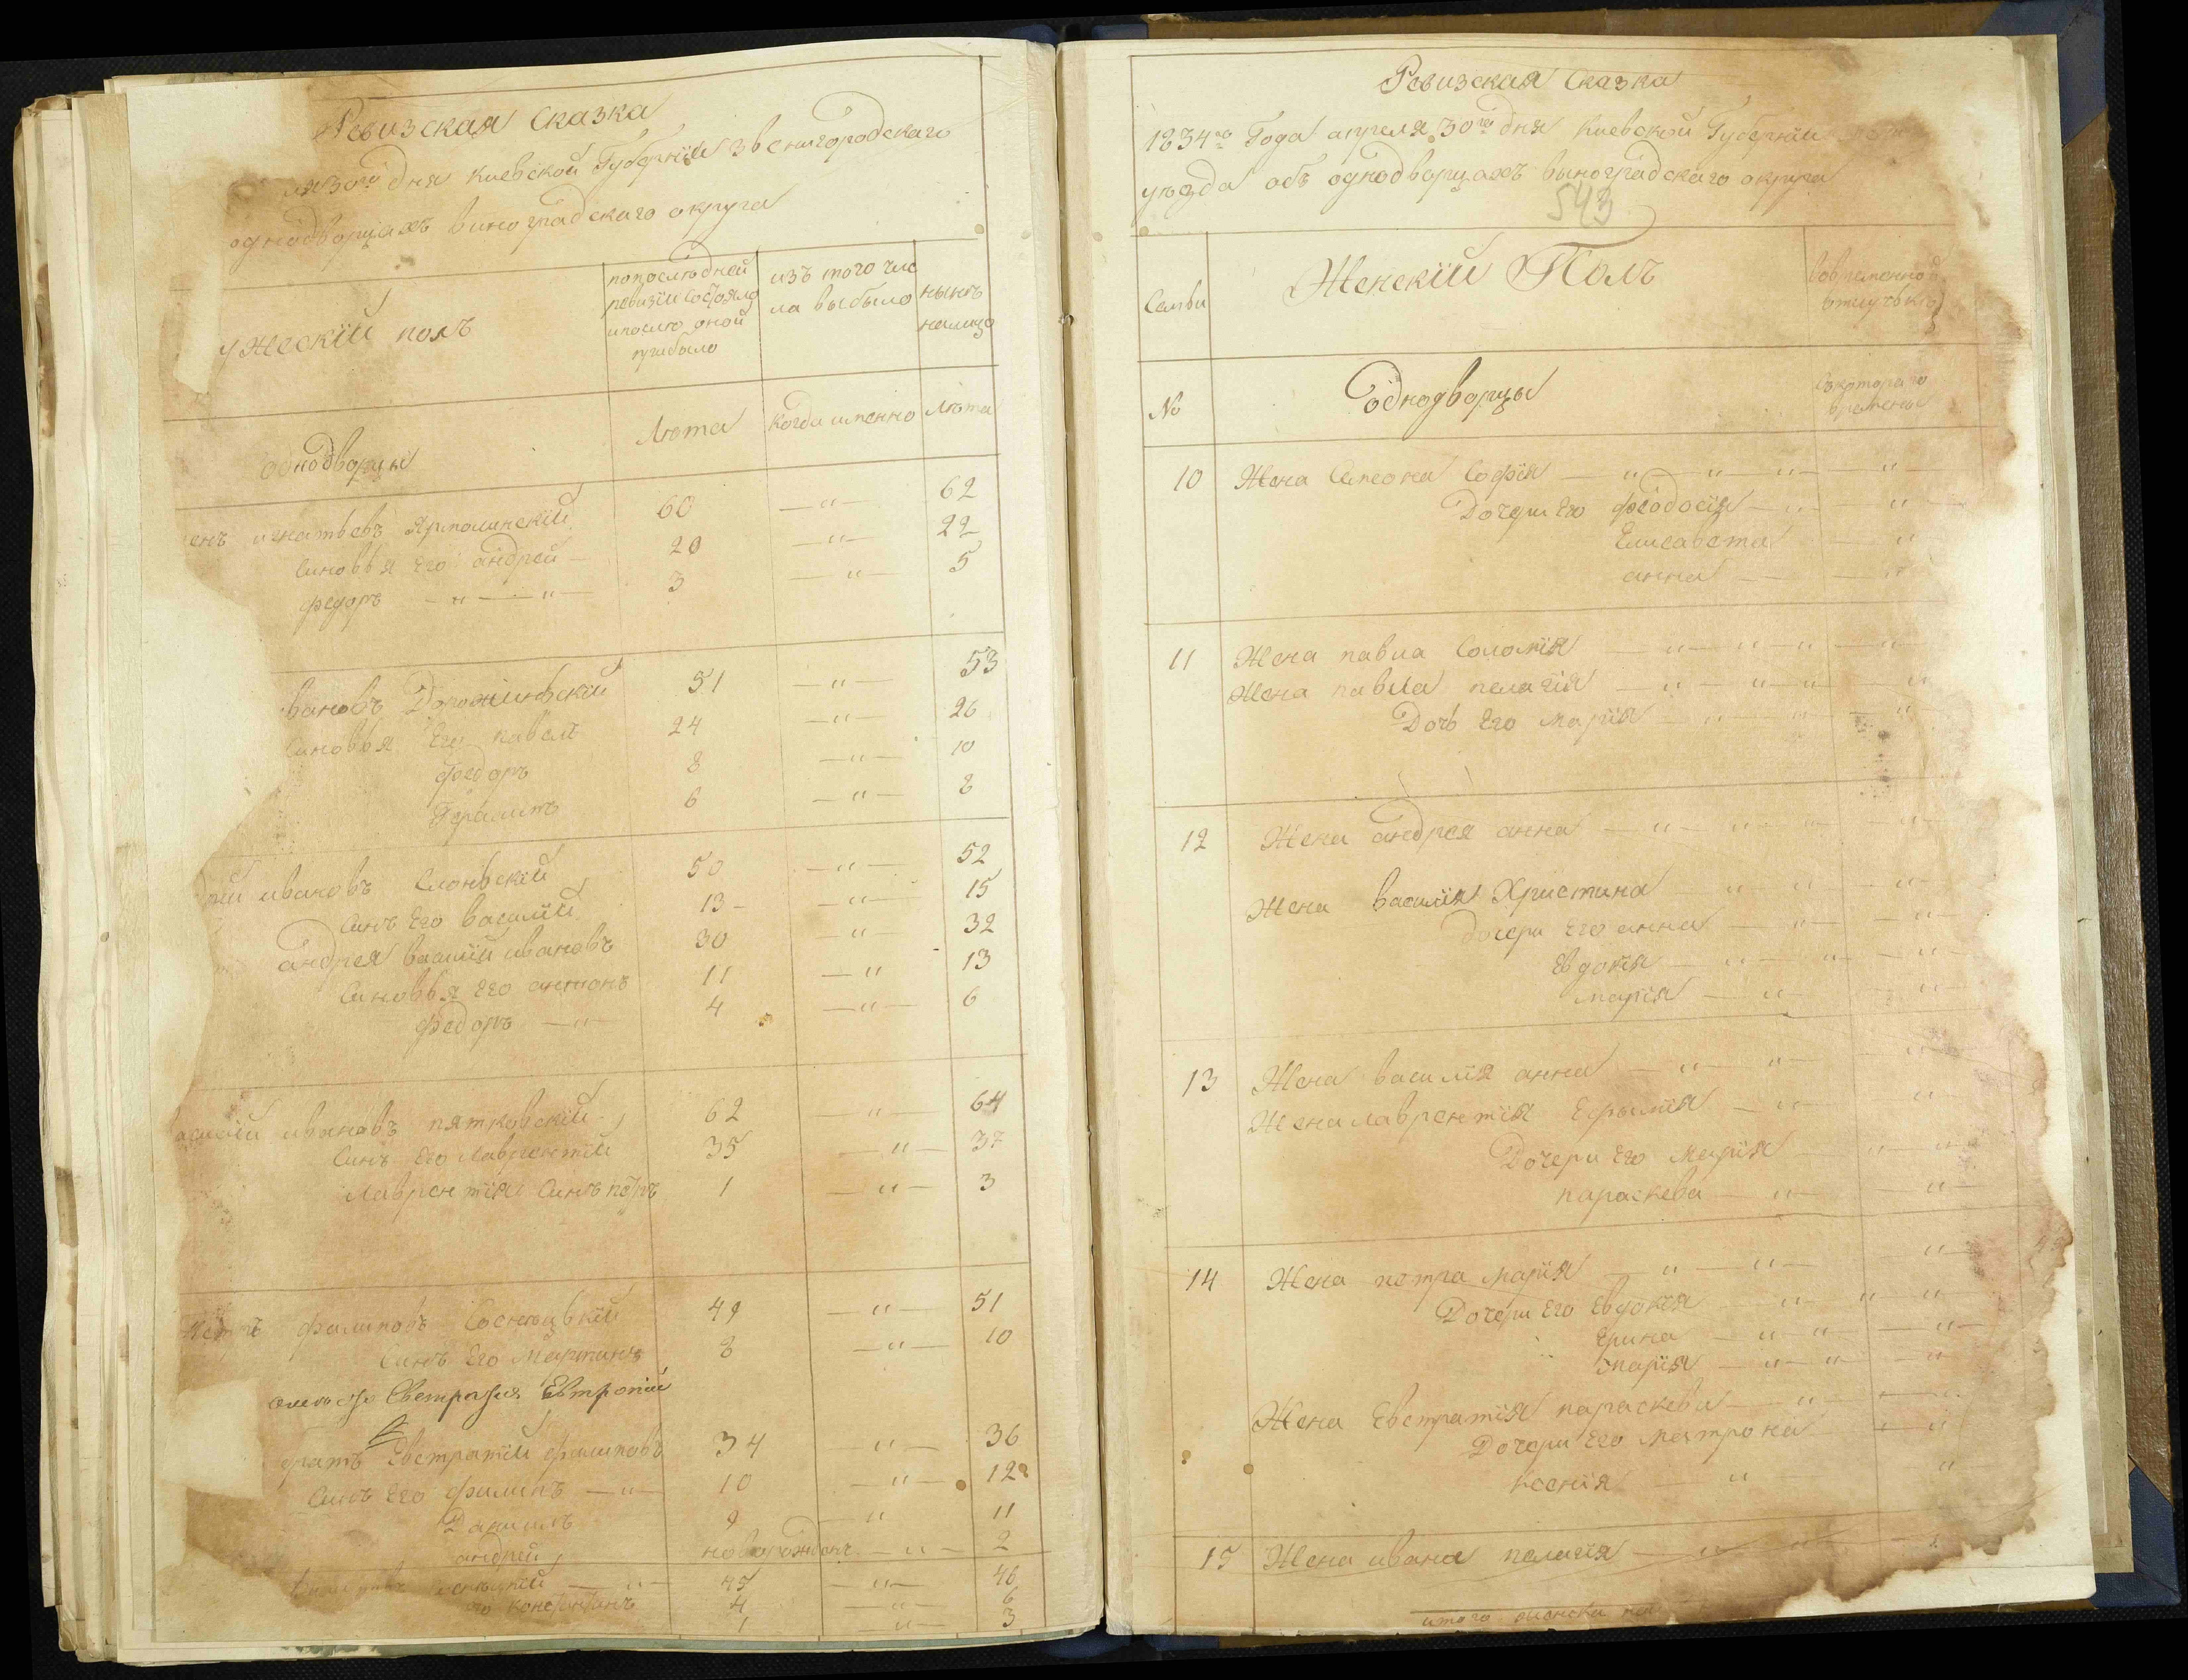 Ревизская Сказка
30го дня Киевской Губернїи Звенигородскаго
однодворцахъ виноградскаго округа
ужескїй полъ
попослѣдней ревизїи состояло ипослѣ оной прибыло
изъ того числа выбыло
нынѣ налицо
однодворцы
Лѣта
Когда именно
Лѣта
енъ игнатьевъ Ярмолинскїй 60 — " — 62
Синовья Его андрей — 20 — " — 22
федоръ — " — " — 3 — " — 5
вановъ 51 — " — 53
Синовья Его павелъ 24 — " — 26
федоръ 8 — " — 10
6 — " — 8
ивановъ Слоньскїй 50 — " — 52
Синъ Его василїй 13 — " — 15
андрея василїй ивановъ 30 — " — 32
Синовья Его антонъ 11 — " 13
федоръ — " — 4 — " — 6
ивановъ пятковскїй 62 — " — 64
Синъ Его Лаврентїй 35 — " — 37
Лаврентїя Синъ петръ 1 — " — 3
петръ филиповъ 49 — " — 51
Синъ Его Мартинъ 8 — " — 10
Евтропїй
братъ Евстратїй филиповъ 34 — " — 36
Синъ Его филипъ — " — 10 — " — 12
Данилъ 9 — " 11
андрей новорожден — " — 2
45 — " — 46
го константинъ 4 — " — 6
1 — " — 3
Ревизская Сказка
1834го Года апреля 30го дня Киевской Губернїи
уѣзда объ однодворцахъ виноградскаго округа
543
Семьи
Женскїй Полъ
вовременной отлучкѣ
No
однодворцы
Съкотораго времени
10 Жена Семена Софїя — " — " — " — "
Дочери Его феодосїя — " — "
Елисавета — "
анна — "
11 Жена павла Соломїя — " — " — " — "
Жена павла пелагїя — " — " — " — "
Дочь Его Марїя — " — " — "
12 Жена андрея анна — " — " — " — "
Жена василїя Христина — " — " — "
дочери Его анна — " — "
Евдокїя — " — " — "
марїя — " — "
13 Жена василїя анна — " — " — "
Жена лаврентїя Ефимїя — " — "
Дочери Его Марїя — " — "
параскева — " — "
14 Жена петра Марїя — " — " — "
Дочери Его Евдокїя — " — " — "
Ерина — " — " — "
Марїя — " — " — "
Жена Евстратїя параскева — " — "
Дочери Его Матрона — "
ксенїя — " — "
15 Жена ивана пелагїя — " — "
итого женска